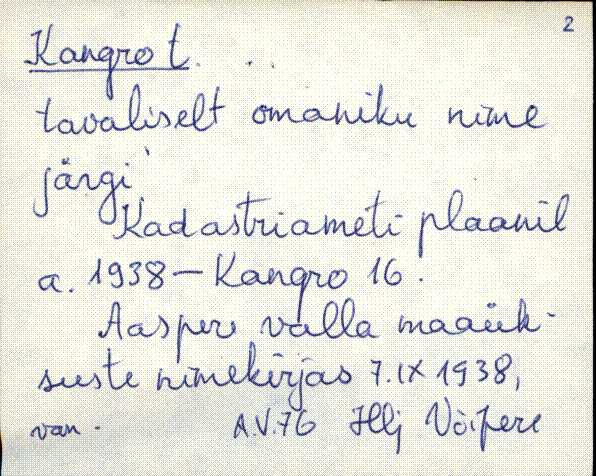 2
Kangro t.
tavaliselt omaniku nime
järgi
Kadastriameti plaanil
a. 1938 – Kangro 16.
Aaspere valla maaük-
suste nimekirjas 7.IX 1938,
van. A.V.76 Hlj Võipere